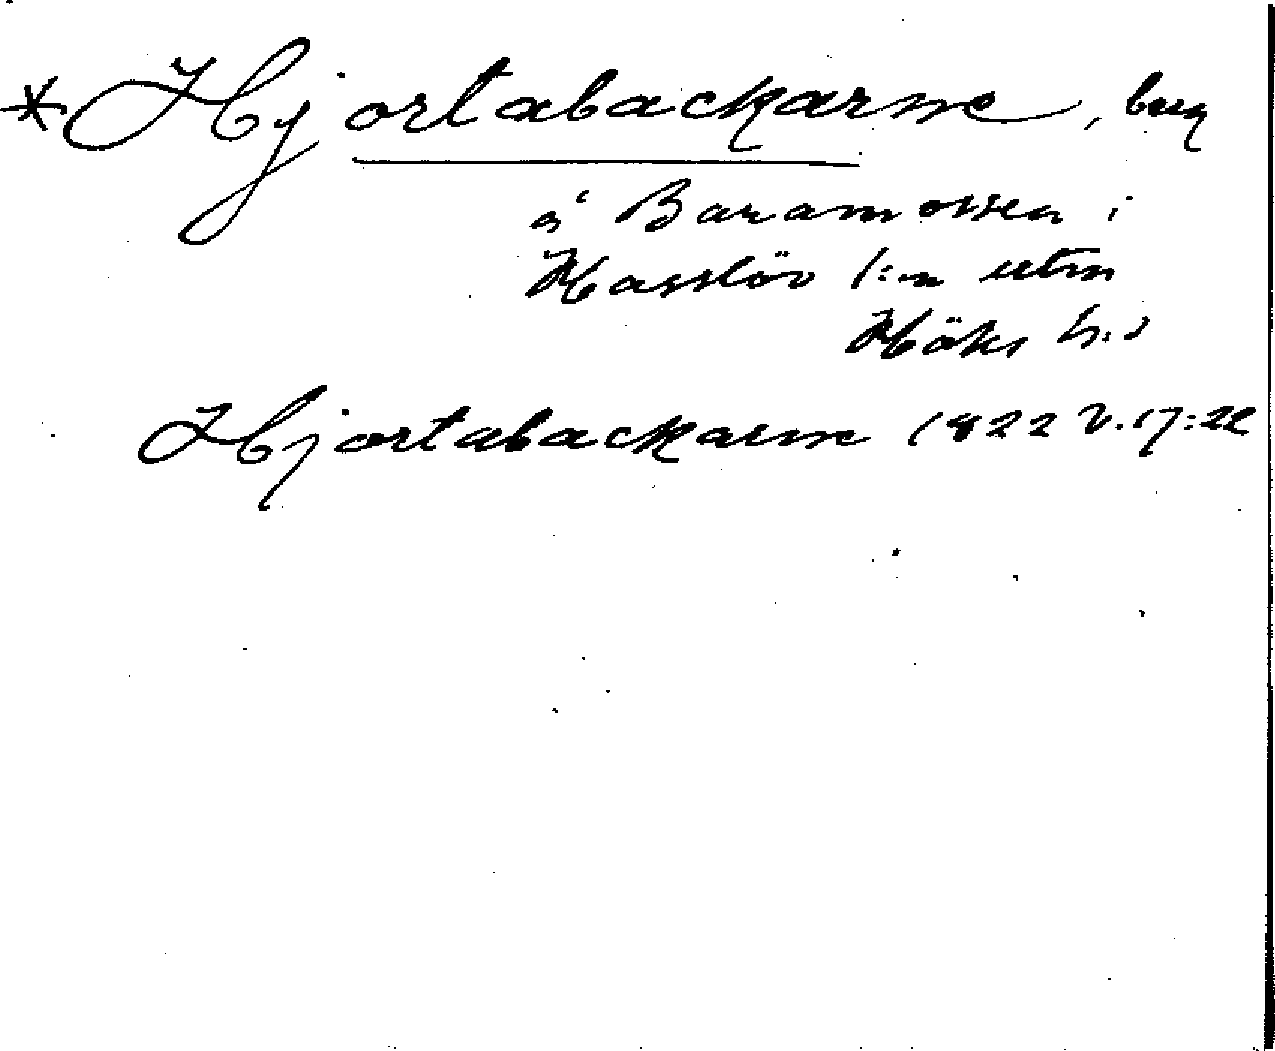 * Hjortabackarne, berg
å Baramossen i
Hasslöv s:n utm
Höks h:d
Hjortabackarne 1822 V. 17:22